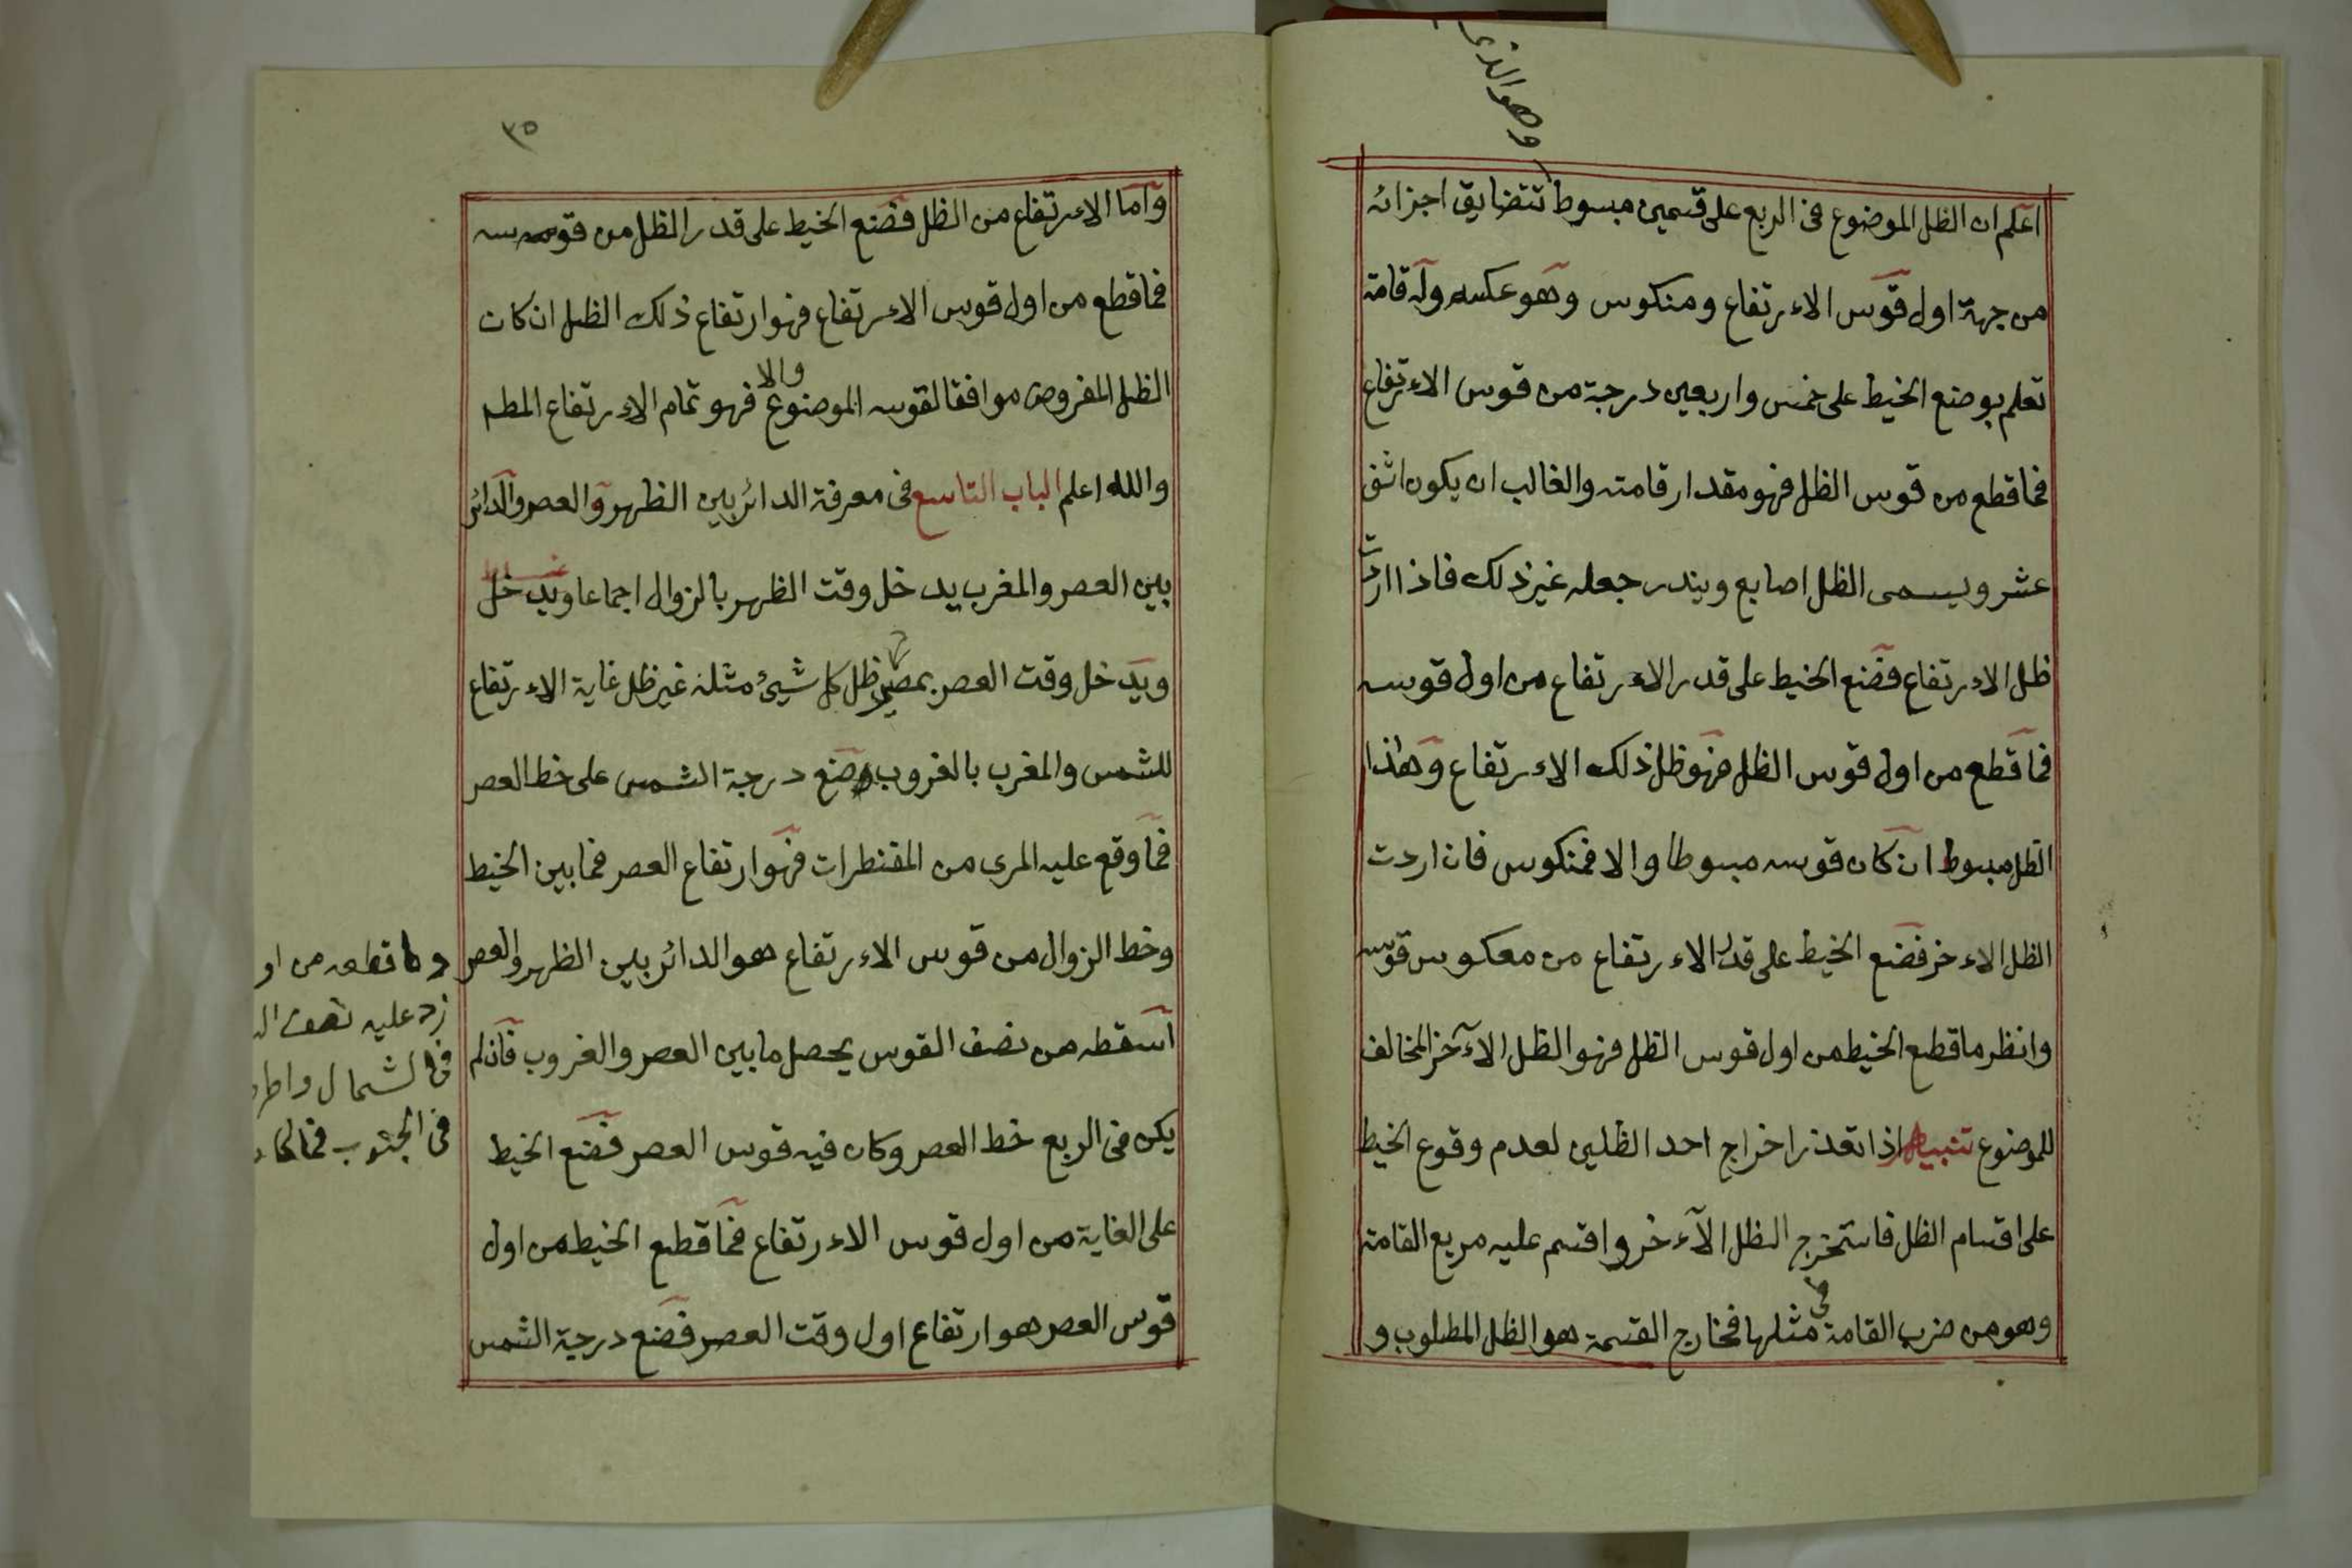 وهو الذى
اعلم ان الظل الموضوع فى الربع على قسمين مبسوط تتضايق اجزائه
من جهة اول قوس الاءرتفاع ومنكوس وهو عكسه وله قامة
تعلم بوضع الخيط على خمس واربعين درجة من قوس الاءرتفاع
فما قطع من قوس الظل فهو مقدار قامته والغالب ان يكون اثنى
عشر ويسمى الظل اصابع ويندر جعله غير ذلك فاذا اردت
ظل الاءرتفاع فضع الخيط على قدر الاءرتفاع من اول قوسه
فما قطع من اول قوس الظل فهو ظل ذلك الاءرتفاع وهذا
الظل مبسوط ان كان قوسه مبسوطا والا فمنكوس فان اردت
الظل الاءخر فضع الخيط على قدر الاءرتفاع من معكوس قوسه
وانظر ما قطع الخيط من اول قوس الظل فهو الظل الآخر المخالف
للموضوع تنبيه اذا تعذر اخراج احد الظلين لعدم وقوع الخيط
على اقسام الظل فاستخرج الظل الآءخر واقسم عليه مربع القامة
وهو من ضرب القامة فى مثلها فخارج القسمة هو الظل المطلوب و
٣٥
واما الاءرتفاع من الظل فضع الخيط على قدر الظل من قوسه
فما قطع من اول قوس الاءرتفاع فهو ارتفاع ذلك الظل ان كان
الظل المفروض موافقا لقوسه الموضوع والا فهو تمام الاءرتفاع المطم
والله اعلم الباب التاسع فى معرفة الدائر بين الظهر والعصر والدائر
بين العصر والمغرب يدخل وقت الظهر بالزوال اجماعا ويدخل
ويدخل وقت العصر بمصير ظل كل شيئ مثله غير ظل غاية الاءرتفاع
للشمس والمغرب بالغروب وضع درجة الشمس على خط العصر
فما وقع عليه المرى من المقنطرات فهو ارتفاع العصر فما بين الخيط
وخط الزوال من قوس الاءرتفاع هو الدائر بين الظهر والعصر
اسقطه من نصف القوس يحصل ما بين العصر والغروب فان لم
يكن فى الربع خط العصر وكان فيه قوس العصر فضع الخيط
على الغاية من اول قوس الاءرتفاع فما قطع الخيط من اول
قوس العصر هو ارتفاع اول وقت العصر فضع درجة الشمس
وما قطعه من او
زد عليه نصف ال
فى الشمال واطر
فى الجنوب فما كا